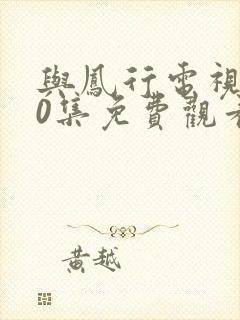 與鳳行電視
0集免費觀看
黃越